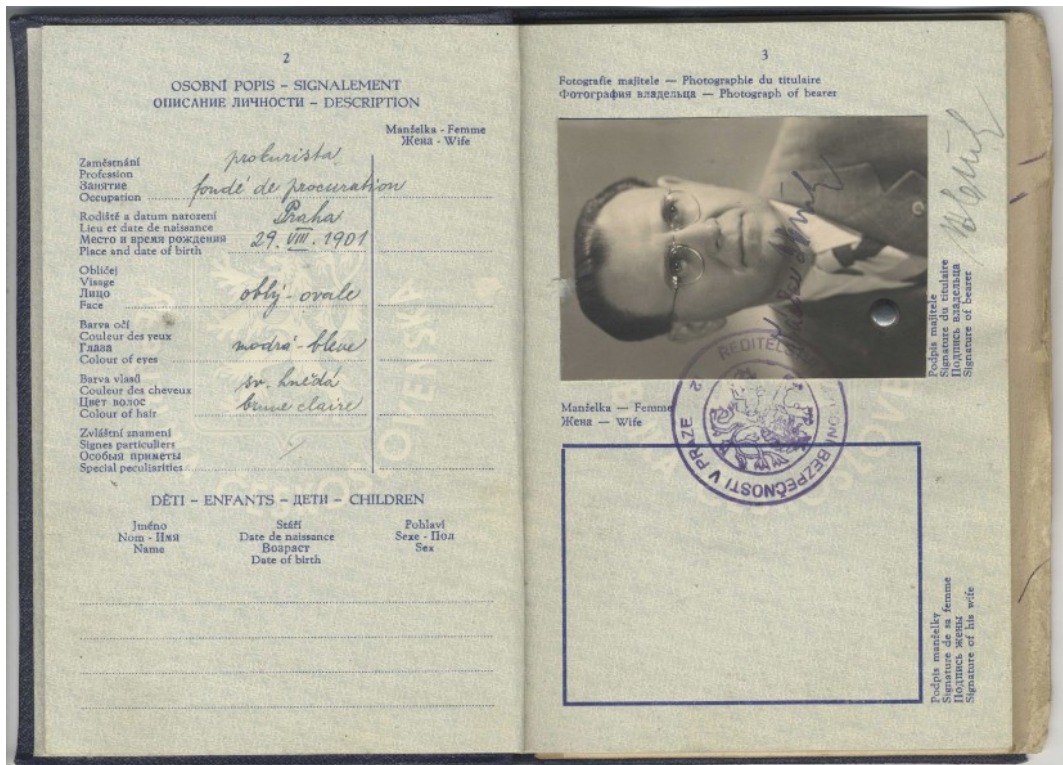 2
OSOBNÍ POPIS – SIGNALEMENT
ОПИСАНИЕ ЛИЧНОСТИ – DESCRIPTION
Manželka - Femme
Жена - Wife
Zaměstnání
Profession
Занятие
Occupation
prokurista
fondé de procuration
Rodiště a datum narození
Lieu et date de naissance
Место и время рождения
Place and date of birth
Praha
29. VIII. 1901
Obličej
Visage
Лицо
Face
oblý - ovale
Barva očí
Couleur des yeux
Глаза
Colour of eyes
modrá - bleue
Barva vlasů
Couleur des cheveux
Цвет волос
Colour of hair
sv. hnědá
brune claire
Zvláštní znamení
Signes particuliers
Особыя приметы
Special peculiarities
DĚTI – ENFANTS – ДЕТИ – CHILDREN
Jméno
Nom - Имя
Name
Stáří
Date de naissance
Возраст
Date of birth
Pohlaví
Sexe - Пол
Sex
3
Fotografie majitele — Photographie du titulaire
Фотография владельца — Photograph of bearer
Podpis majitele
Signature du titulaire
Подпись владельца
Signature of bearer
ŘEDITELS
BEZPEČNOSTI V PRAZE
2
Manželka — Femme
Жена — Wife
Podpis manželky
Signature de sa femme
Подпись жены
Signature of his wife